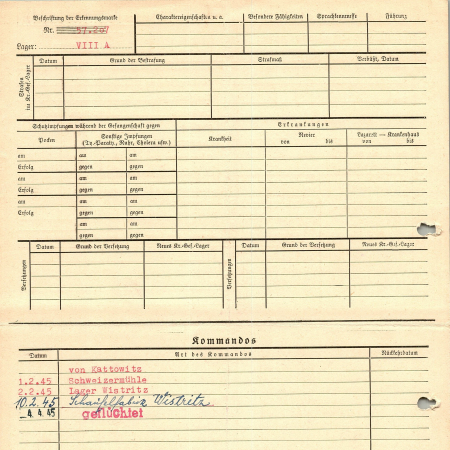 Beschriftung der Erkennungsmarke
Nr.
Lager: VIII A
Charaktereigenschaften u. a.
Besondere Fähigkeiten
Sprachkenntnisse
Führung
Strafen im Kr.-Gef.-Lager
Datum
Grund der Bestrafung
Strafmaß
Verbüßt, Datum
Schutzimpfungen während der Gefangenschaft gegen
Erkrankungen
Pocken
Sonstige Impfungen
(Ty.-Paraty., Ruhr, Cholera usw.)
Krankheit
Revier
von bis
Lazarett — Krankenhaus
von bis
am am am
Erfolg gegen gegen
am am am
Erfolg gegen gegen
am am am
Erfolg gegen gegen
am am
gegen gegen
am am
gegen gegen
Versetzungen
Datum
Grund der Versetzung
Neues Kr.-Gef.-Lager
Versetzungen
Datum
Grund der Versetzung
Neues Kr.-Gef.-Lager
Kommandos
Datum
Art des Kommandos
Rückkehrdatum
von Kattowitz
1.2.45 Schweizermühle
2.2.45 Lager Wistritz
10.2.45 Schaufelfabrik Wistritz
4.4.45 geflüchtet